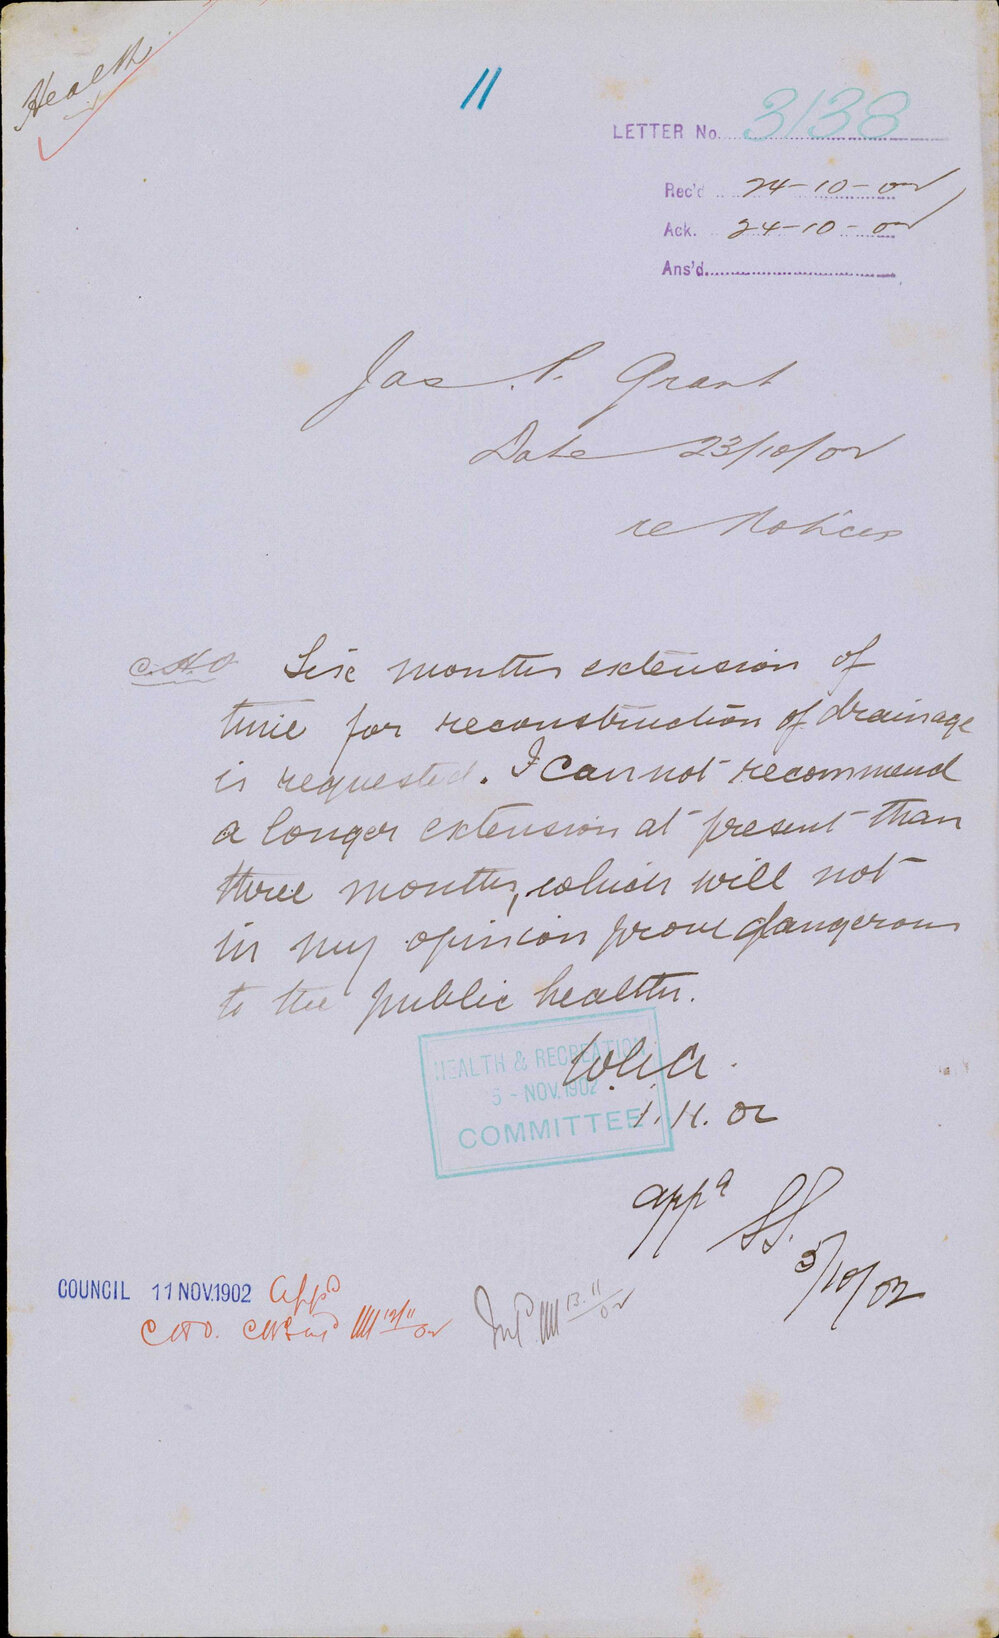 Health
11
LETTER No. 3138
Rec'd 24-10-02
Ack. 24-10-02
Ans'd
Jas. P. Grant
Date 23/10/02
re Notices
C.H.O
Six months extension of
time for reconstruction of drainage
is requested. I cannot recommend
a longer extension at present than
three months, which will not
in my opinion prove dangerous
to the public health.
HEALTH & RECREATION
5 - NOV. 1902
COMMITTEE
1. 11. 02
appd
5/10/02
COUNCIL 11 NOV. 1902 appd
CHO. 12/11/02
13.11/02